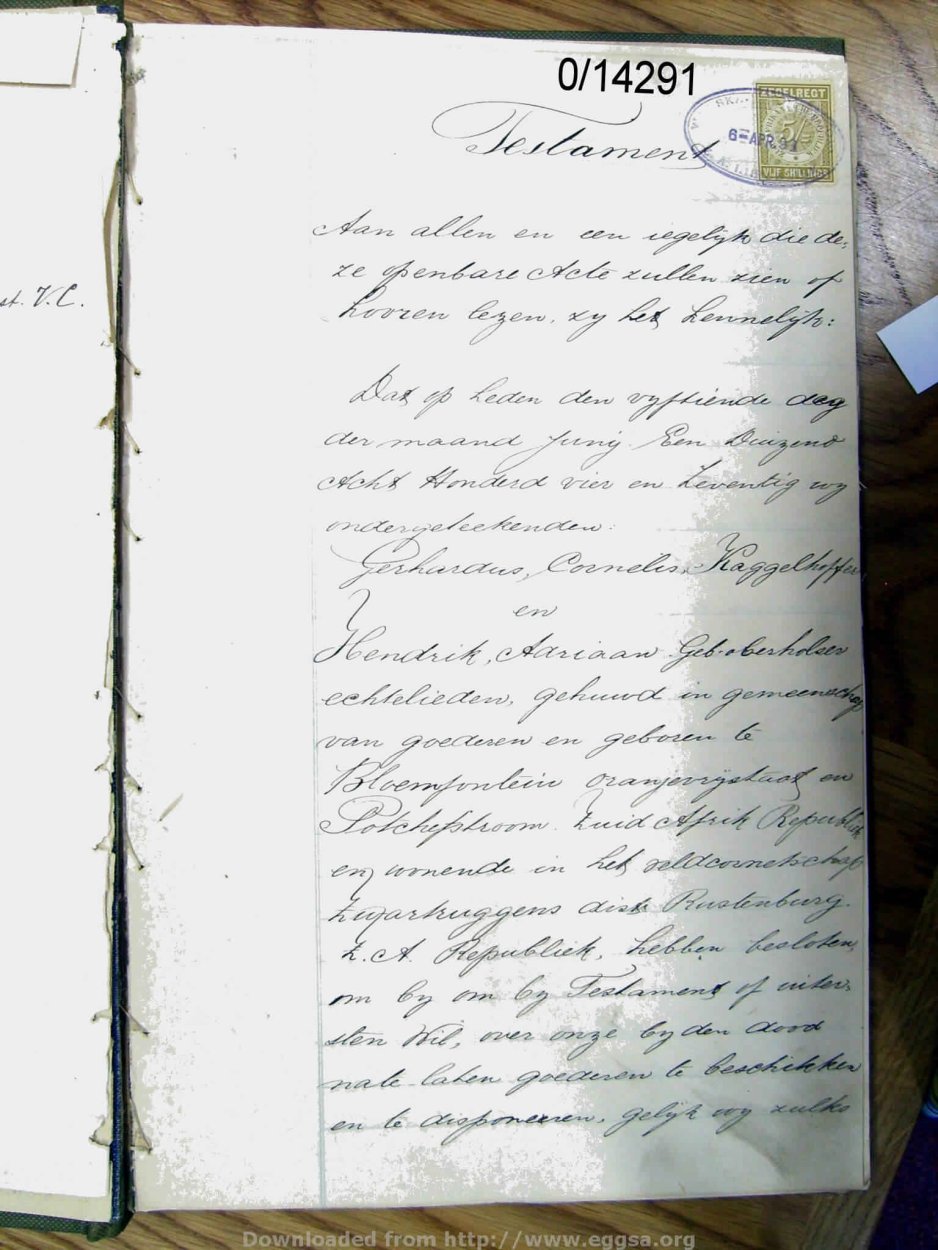 0/14291
ZEGELREGT
6 APR 9
5/
VIJF SHILLINGS
Testament
st. V.C.
Aan allen en een iegelijk die de:
ze openbare Acte zullen zien of
hooren lezen, zy het kennelijk:
Dat op heden den vyftiende dag
der maand Junij Een Duizend
Acht Honderd vier en Zeventig wy
ondergeteekenden:
Gerhardus, Cornelis, Kaggelhoffer
en
Hendrik, Adriaan Geb. oberholser
echtelieden, gehuwd in gemeenschap
van goederen en geboren te
Bloemfontein oranjevrystaat en
Potchefstroom. Zuid Afrik Republiek
en wonende in het veldcornetschap
Zwartruggens distr Rustenburg.
Z. A. Republiek, hebben besloten,
om by om by Testament of uiter,
sten Wil, over onze by den dood
nate laten goederen te beschikken
en te disponeeren, gelijk wy zulks
Downloaded from http://www.eggsa.org